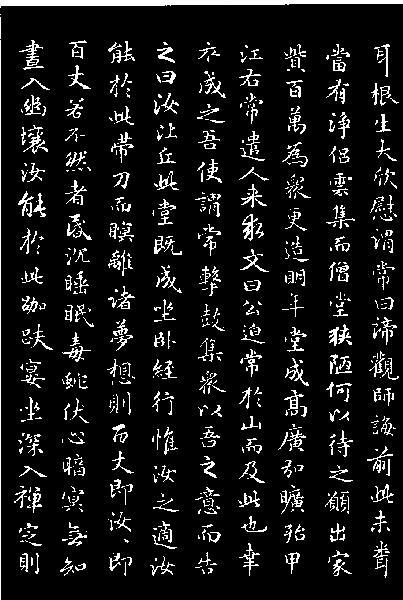 耳根生大欣慰謂常曰諦觀師誨前此未聞
當有淨侶雲集而僧堂狹陋何以待之願出家
貲百萬為眾更造明年堂成高廣弘曠殆甲
江右常遣人來求文曰公迫常於山而及此也幸
卒成之吾使謂常擊鼓集眾以吾之意而告
之曰汝比丘此堂既成坐臥經行惟汝之適汝
能於此帶刀而瞑離諸夢想則百丈即汝、即
百丈若不然者昏沉睡眠毒蛇伏心暗冥無知
晝入幽壤汝能於此跏趺宴坐深入禪定則